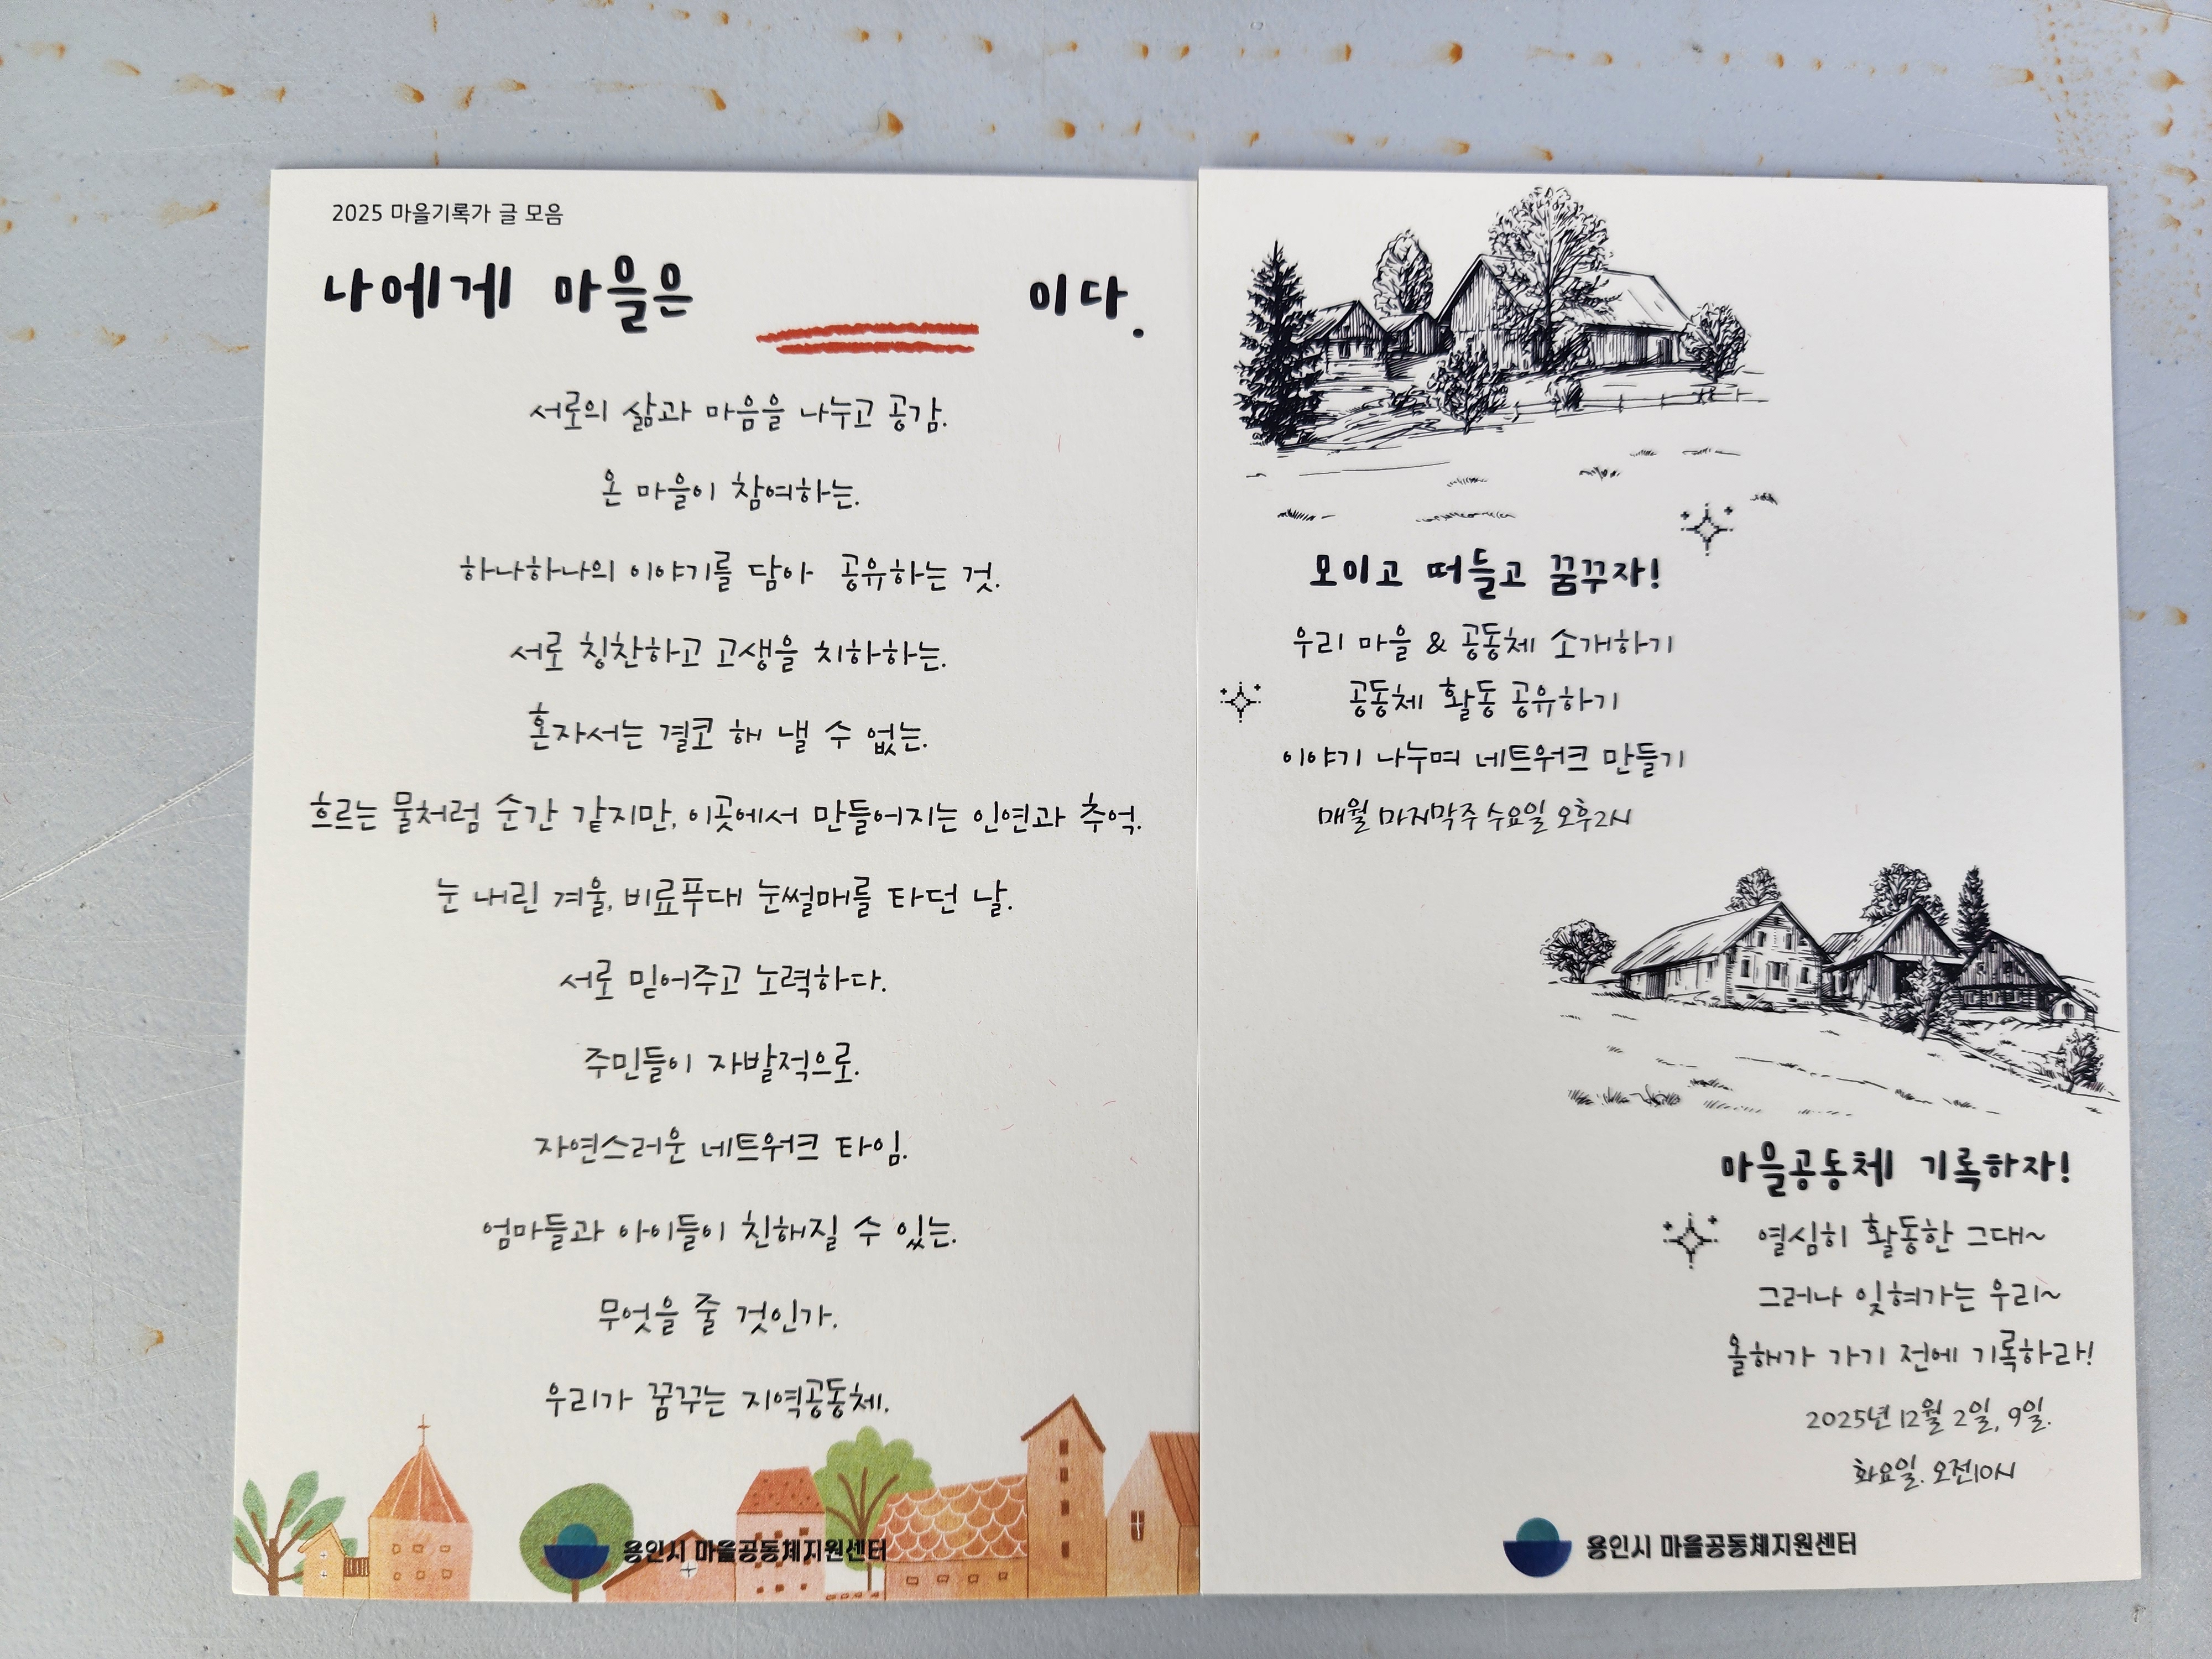 2025 마을기록가 글 모음
나에게 마을은 이다.
서로의 삶과 마음을 나누고 공감.
온 마을이 참여하는.
하나하나의 이야기를 담아 공유하는 것.
서로 칭찬하고 고생을 치하하는.
혼자서는 결코 해 낼 수 없는.
흐르는 물처럼 순간 같지만, 이곳에서 만들어지는 인연과 추억.
눈 내린 겨울, 비료푸대 눈썰매를 타던 날.
서로 믿어주고 노력하다.
주민들이 자발적으로.
자연스러운 네트워크 타임.
엄마들과 아이들이 친해질 수 있는.
무엇을 줄 것인가.
우리가 꿈꾸는 지역공동체.
용인시 마을공동체지원센터
모이고 떠들고 꿈꾸자!
우리 마을 & 공동체 소개하기
공동체 활동 공유하기
이야기 나누며 네트워크 만들기
매월 마지막주 수요일 오후2시
마을공동체 기록하자!
열심히 활동한 그대~
그러나 잊혀가는 우리~
올해가 가기 전에 기록하라!
2025년 12월 2일, 9일.
화요일. 오전10시
용인시 마을공동체지원센터